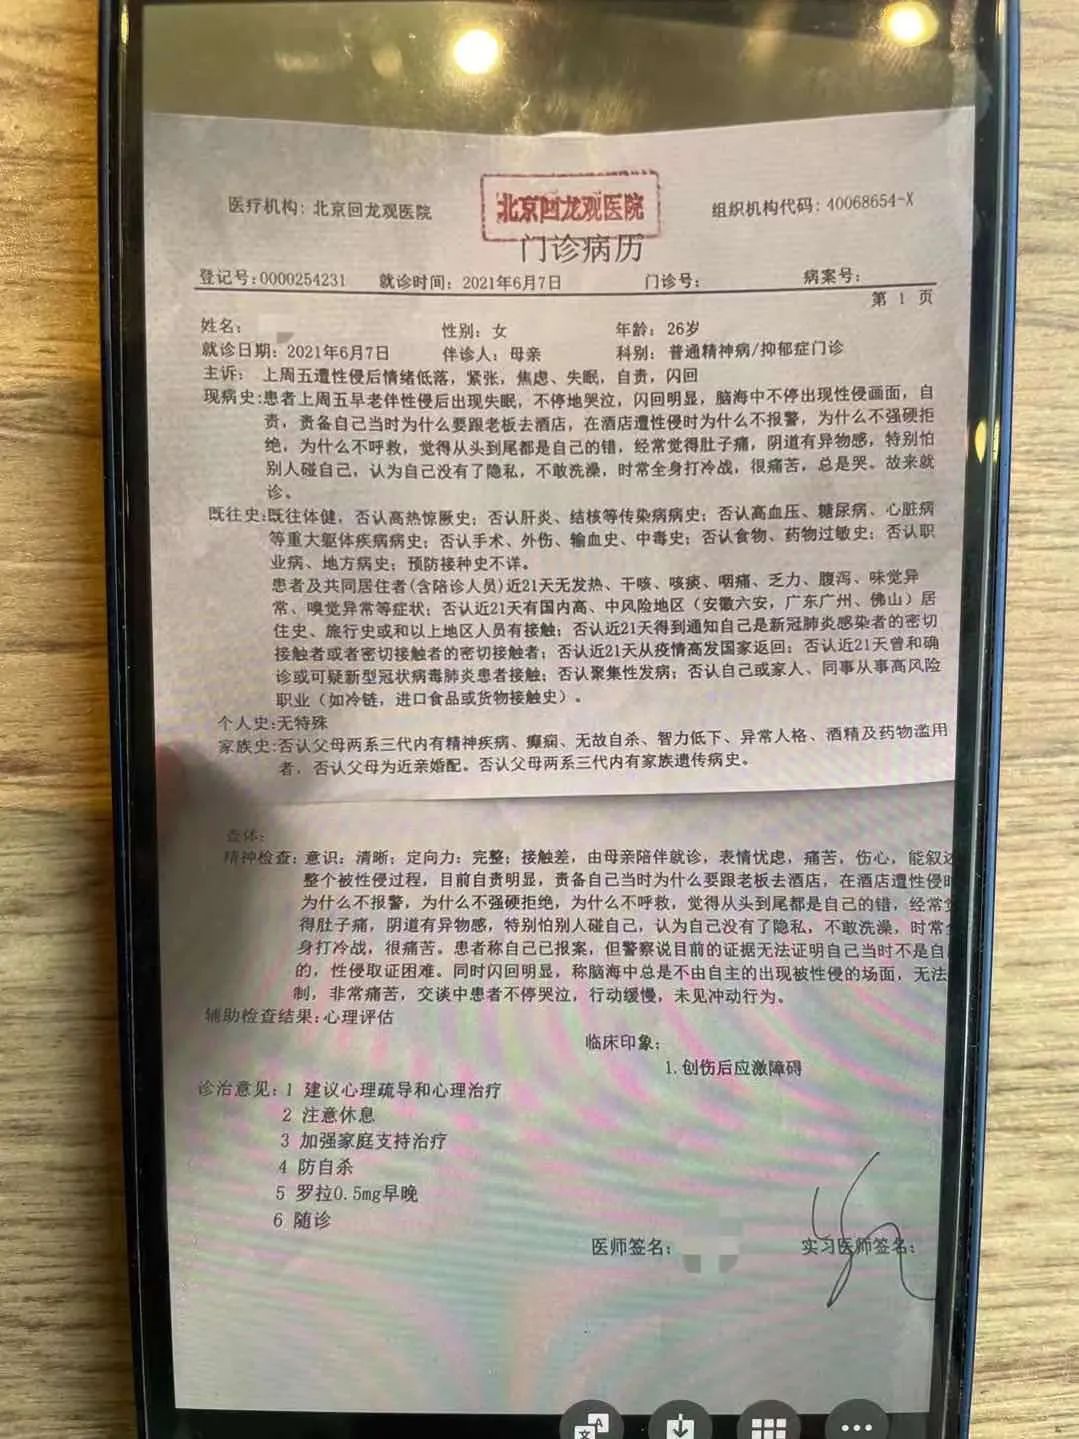 医疗机构: 北京回龙观医院
北京回龙观医院
组织机构代码: 40068654-X
门诊病历
登记号:0000254231 就诊时间: 2021年6月7日 门诊号: 病案号:
第 1 页
姓名: 性别: 女 年龄: 26岁
就诊日期: 2021年6月7日 伴诊人: 母亲 科别: 普通精神病/抑郁症门诊
主诉: 上周五遭性侵后情绪低落, 紧张, 焦虑、失眠, 自责, 闪回
现病史:患者上周五早老伴性侵后出现失眠, 不停地哭泣, 闪回明显, 脑海中不停出现性侵画面, 自
责, 责备自己当时为什么要跟老板去酒店, 在酒店遭性侵时为什么不报警, 为什么不强硬拒
绝, 为什么不呼救, 觉得从头到尾都是自己的错, 经常觉得肚子痛, 阴道有异物感, 特别怕
别人碰自己, 认为自己没有了隐私, 不敢洗澡, 时常全身打冷战, 很痛苦, 总是哭。故来就
诊。
既往史:既往体健, 否认高热惊厥史; 否认肝炎、结核等传染病病史; 否认高血压、糖尿病、心脏病
等重大躯体疾病病史; 否认手术、外伤、输血史、中毒史; 否认食物、药物过敏史; 否认职
业病、地方病史; 预防接种史不详。
患者及共同居住者(含陪诊人员)近21天无发热、干咳、咳痰、咽痛、乏力、腹泻、味觉异
常、嗅觉异常等症状; 否认近21天有国内高、中风险地区 (安徽六安, 广东广州、佛山) 居
住史、旅行史或和以上地区人员有接触; 否认近21天得到通知自己是新冠肺炎感染者的密切
接触者或者密切接触者的密切接触者; 否认近21天从疫情高发国家返回; 否认近21天曾和确
诊或可疑新型冠状病毒肺炎患者接触; 否认聚集性发病; 否认自己或家人、同事从事高风险
职业 (如冷链, 进口食品或货物接触史) 。
个人史:无特殊
家族史:否认父母两系三代内有精神疾病、癫痫、无故自杀、智力低下、异常人格、酒精及药物滥用
者, 否认父母为近亲婚配。否认父母两系三代内有家族遗传病史。
查体:
精神检查: 意识: 清晰; 定向力: 完整; 接触差, 由母亲陪伴就诊, 表情忧虑, 痛苦, 伤心, 能叙述
整个被性侵过程, 目前自责明显, 责备自己当时为什么要跟老板去酒店, 在酒店遭性侵时
为什么不报警, 为什么不强硬拒绝, 为什么不呼救, 觉得从头到尾都是自己的错, 经常觉
得肚子痛, 阴道有异物感, 特别怕别人碰自己, 认为自己没有了隐私, 不敢洗澡, 时常全
身打冷战, 很痛苦。患者称自己已报案, 但警察说目前的证据无法证明自己当时不是自
的, 性侵取证困难。同时闪回明显, 称脑海中总是不由自主的出现被性侵的场面, 无法
制, 非常痛苦, 交谈中患者不停哭泣, 行动缓慢, 未见冲动行为。
辅助检查结果:心理评估
临床印象:
1.创伤后应激障碍
诊治意见: 1 建议心理疏导和心理治疗
2 注意休息
3 加强家庭支持治疗
4 防自杀
5 罗拉0.5mg早晚
6 随诊
医师签名: 实习医师签名: